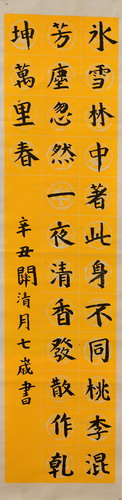 冰雪林中著此身不同桃李混
芳塵忽然一夜清香發散作乾
坤萬里春
辛丑開清月七歲書